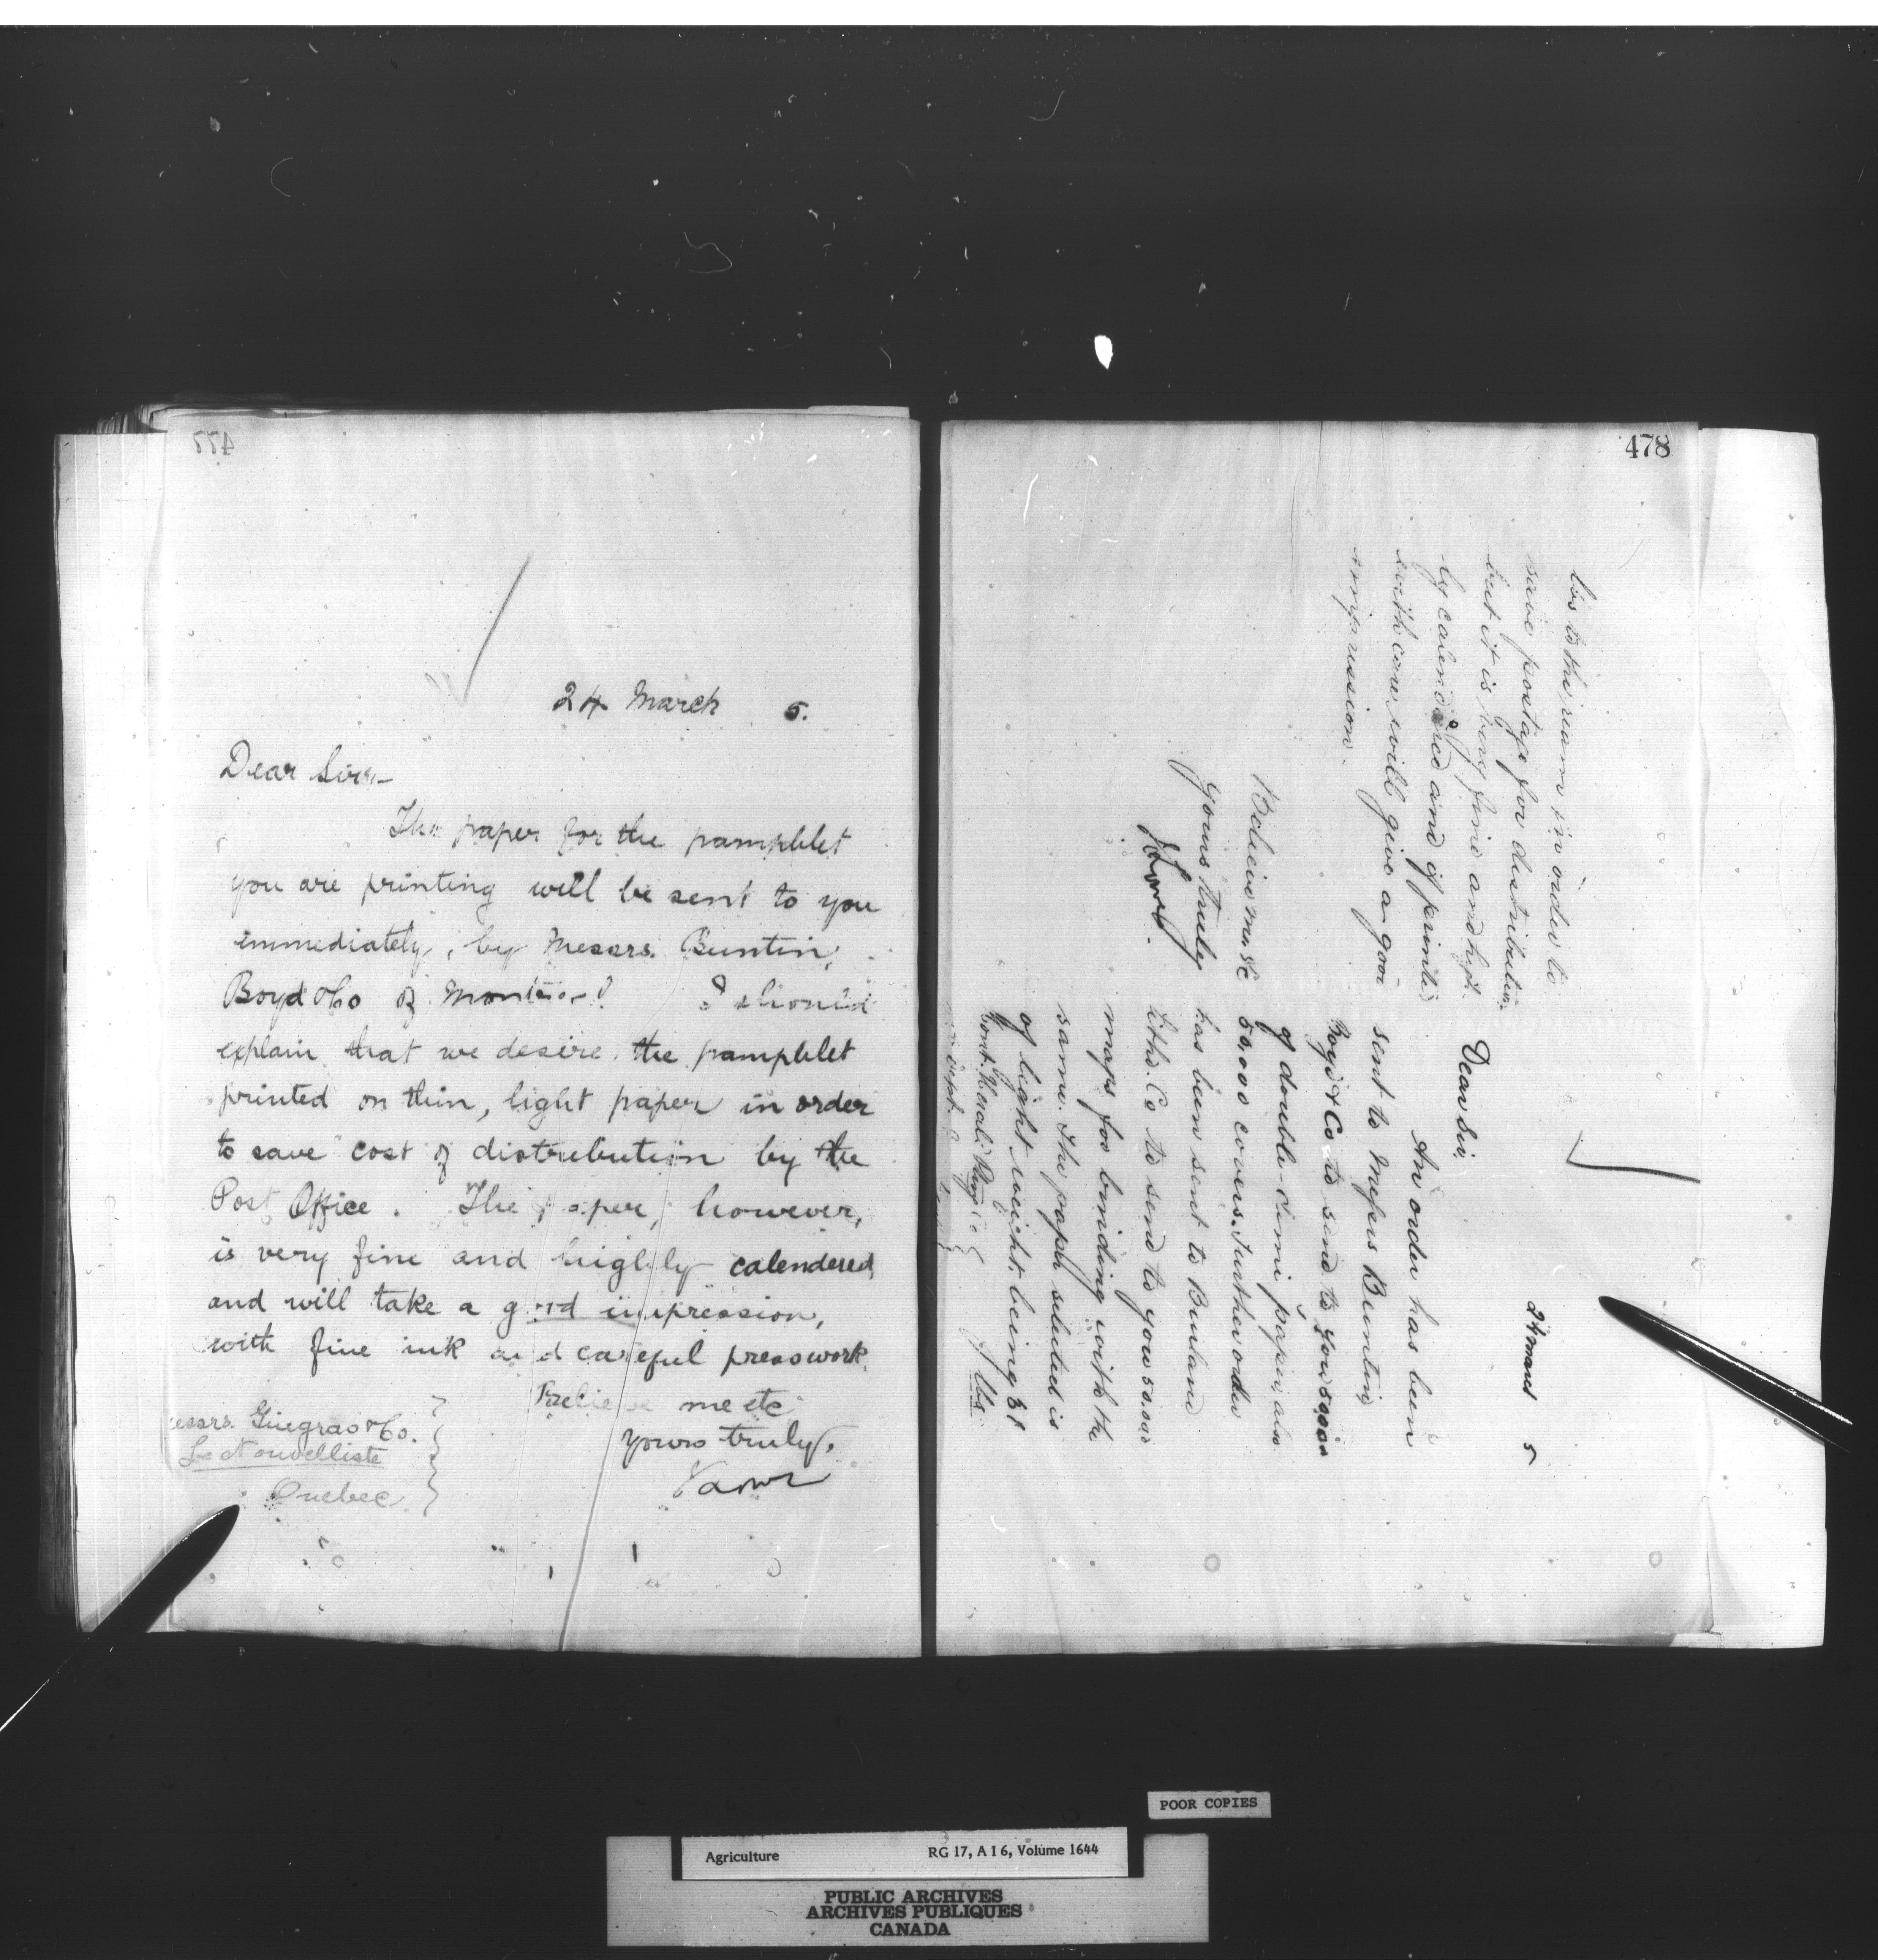 477
24 March 5.
Dear Sirs-
The paper for the pamphlet
you are printing will be sent to you
immediately, by Messrs. Buntin,
Boyd & Co of Montreal. I should
explain that we desire the pamphlet
printed on thin, light paper in order
to save cost of distribution by the
Post Office. The paper, however,
is very fine and highly calendered,
and will take a good impression,
with fine ink and careful presswork.
Believe me etc
yours truly,
Messrs. Guegras & Co.
Le Nouvelliste
Quebec
478
24 March 5
Dear Sir
An order has been
sent to Messrs Buntin
Boyd & Co to send to you
of double demi paper, also
50,000 covers. Further order
has been sent to Burland
Litho. Co to send to you 50,000
maps for binding with the
same. The paper selected is
of light weight being 31
lbs to the ream in order to
save postage for distribution
but it is very fine and high-
ly calendered and if printed
with care will give a good
impression.
Believe me &c
Yours truly
JLowe.
POOR COPIES
Agriculture RG 17, A I 6, Volume 1644
PUBLIC ARCHIVES
ARCHIVES PUBLIQUES
CANADA